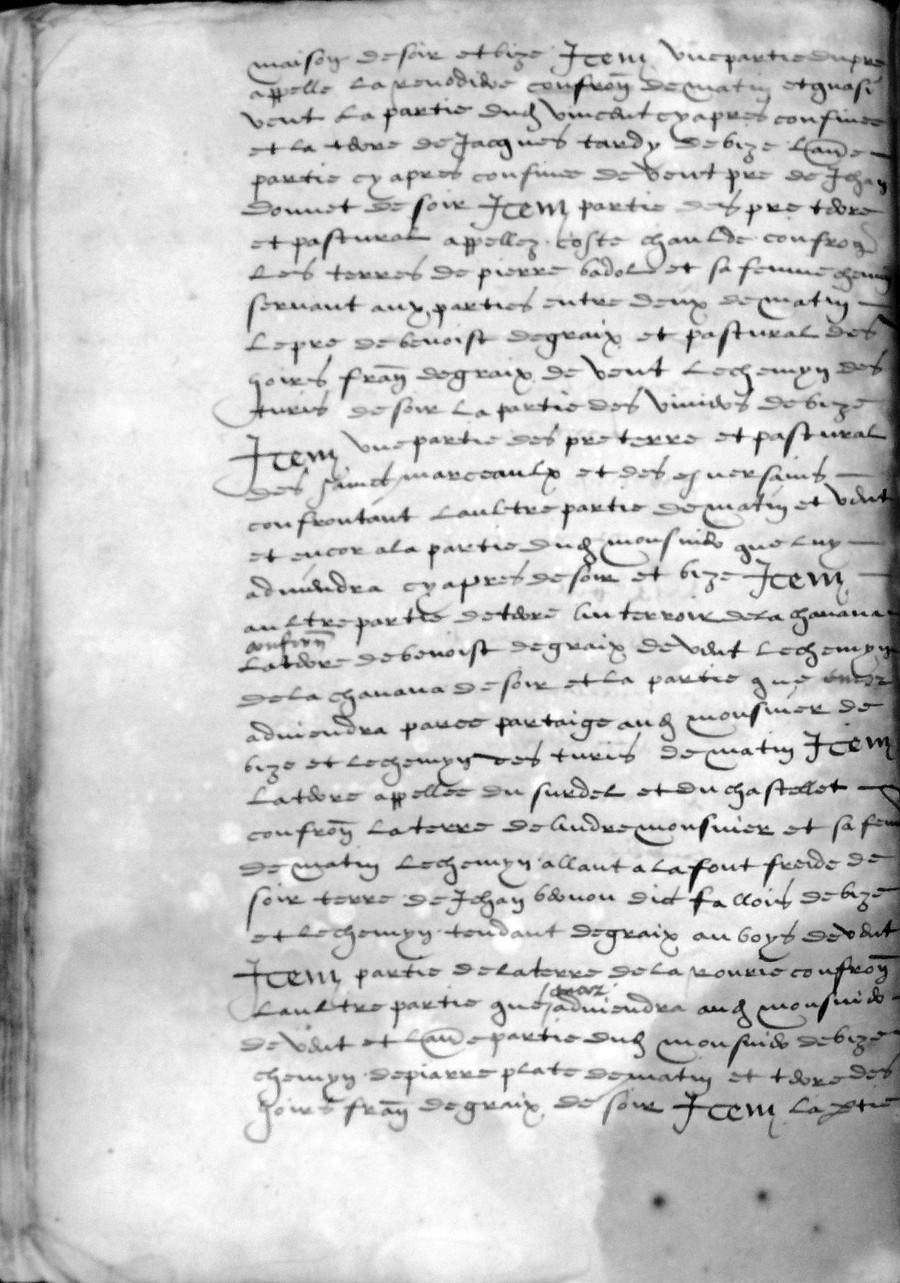 maison de soir et bize Item une partie du pre
appelle la revodiere confron de matin et quasi
vent la partie dud vincent cy apres confinee
et la terre de Jacques tardy de bize lau e
partie cy apres confinee de vent pre de Jehan
donnet de soir Item partie des pre terre
et pastural appellez coste chaulde confron
les terres de pierre badol et sa femme chemin
servant aux parties entre deux de matin
le pre de benoist degraix et pastural des
hoirs fran degraix de vent le chemyn des
turis de soir la partie des de bize
Item une partie des pre terre et pastural
des sainct marceaulx et des enversains
confrontant laultre partie de matin et vent
et encor a la partie dud monsinier que luy
adviendra cy apres de soir et bize Item
aultre partie de terre au terroir de la chavana
confron
la terre de benoist degraix de vent le chemyn
de la chavana de soir et la partie que
adviendra par ce partaige aud monsinier de
bize et le chemyn des turis de matin Item
la terre appellee du surdel et du chastellet
confron la terre de andre monsinier et sa fem
de matin le chemyn allant a la font freide de
soir terre de Jehan dict fallois de bize
et le chemyn tendant degraix au boys de vent
Item partie de la terre de la rourie confron
laultre partie que adviendra aud monsinier
de vent et lau e partie dud monsinier de bize
chemyn de piarre plate de matin et terre des
hoirs fran degraix de soir Item la ptie